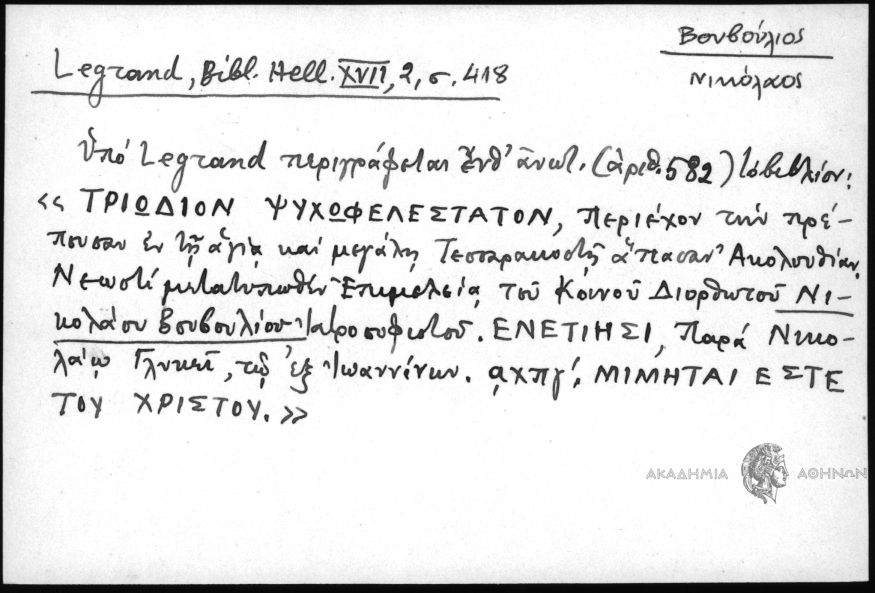 Βουβούλιος
Νικόλαος
Legrand, Bibl. Hell. XVII, 2, σ. 418
Ὑπό Legrand περιγράφεται ἔνθ' ἀνωτ. (ἀριθ. 582) τό βιβλίον:
«ΤΡΙΩΔΙΟΝ ΨΥΧΩΦΕΛΕΣΤΑΤΟΝ, περιέχον τήν πρέ-
πουσαν ἐν τῇ ἁγίᾳ καί μεγάλῃ Τεσσαρακοστῇ ἅπασαν Ἀκολουθίαν.
Νεωστί μετατυπωθέν Ἐπιμελείᾳ τοῦ Κοινοῦ Διορθωτοῦ Νι-
κολάου Βουβουλίου Ἰατροσοφιστοῦ. ΕΝΕΤΙΗΣΙ, Παρά Νικο-
λάῳ Γλυκεῖ, τῷ ἐξ Ἰωαννίνων. αχπγ΄. ΜΙΜΗΤΑΙ ΕΣΤΕ
ΤΟΥ ΧΡΙΣΤΟΥ.»
ΑΚΑΔΗΜΙΑ ΑΘΗΝΩΝ